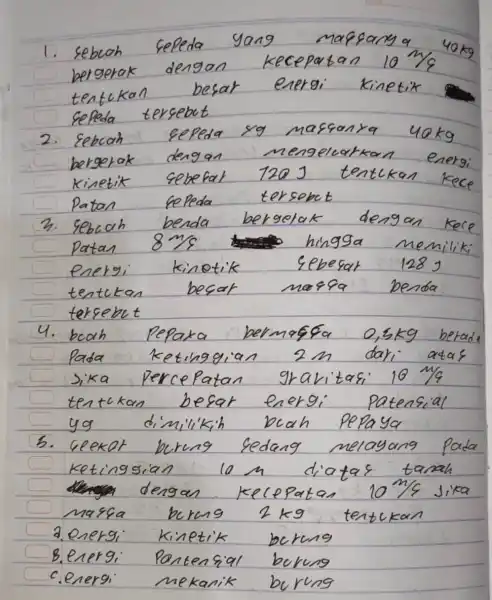 1. sebuah sepeda yang massanya 40kg
bergerak dengan kecepatan 10 m/s
tentukan besar energi kinetik
sepeda tersebut
2. sebuah sepeda yg massanya 40kg
bergerak dengan mengeluarkan energi
kinetik sebesar 720 J tentukan kece
patan sepeda tersebut
3. sebuah benda bergerak dengan kece
patan 8 m/s hingga memiliki
energi kinetik sebesar 128 J
tentukan besar massa benda
tersebut
4. buah pepaya bermassa 0,5kg berada
pada ketinggian 2 m dari atas
Jika percepatan gravitasi 10 m/s
tentukan besar energi patensial
yg dimilikih buah pepaya
5. seekor burung sedang melayang pada
ketinggian 10 m diatas tanah
dengan kecepatan 10 m/s Jika
massa burung 2 kg tentukan
a. energi kinetik burung
B. energi Pantensial burung
C. energi mekanik burung